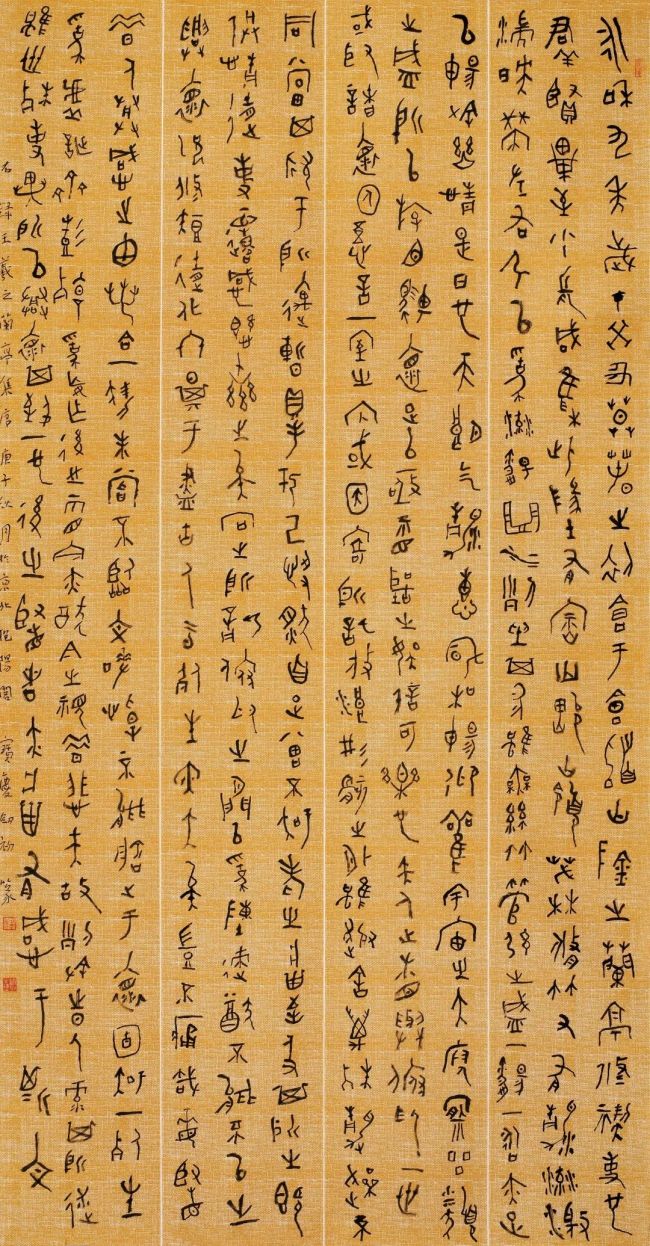 永和九年歲在癸丑暮春之初會于會稽山陰之蘭亭修禊事也
群賢畢至少長咸集此地有崇山峻嶺茂林修竹又有清流激
湍映帶左右引以為流觴曲水列坐其次雖無絲竹管弦之盛一觴一詠亦足
以暢敘幽情是日也天朗氣清惠風和暢仰觀宇宙之大俯察品類
之盛所以游目騁懷足以極視聽之娛信可樂也夫人之相與俯仰一世
或取諸懷抱悟言一室之內或因寄所託放浪形骸之外雖趣舍萬殊靜躁不
同當其欣于所遇暫得於己快然自足曾不知老之將至及其所之既
倦情隨事遷感慨係之矣向之所欣俛仰之間以為陳跡猶不能不以之
興懷況修短隨化終期于盡古人云死生亦大矣豈不痛哉每覽
昔人興感之由若合一契未嘗不臨文嗟悼不能喻之于懷固知一死生
為虛誕齊彭殤為妄作後之視今亦由今之視昔悲夫故列敘時人錄其所述
雖世殊事異所以興懷其致一也後之覽者亦將有感于斯文
右錄王羲之蘭亭集序 庚子秋月於京北陽閣 寶慶 篆